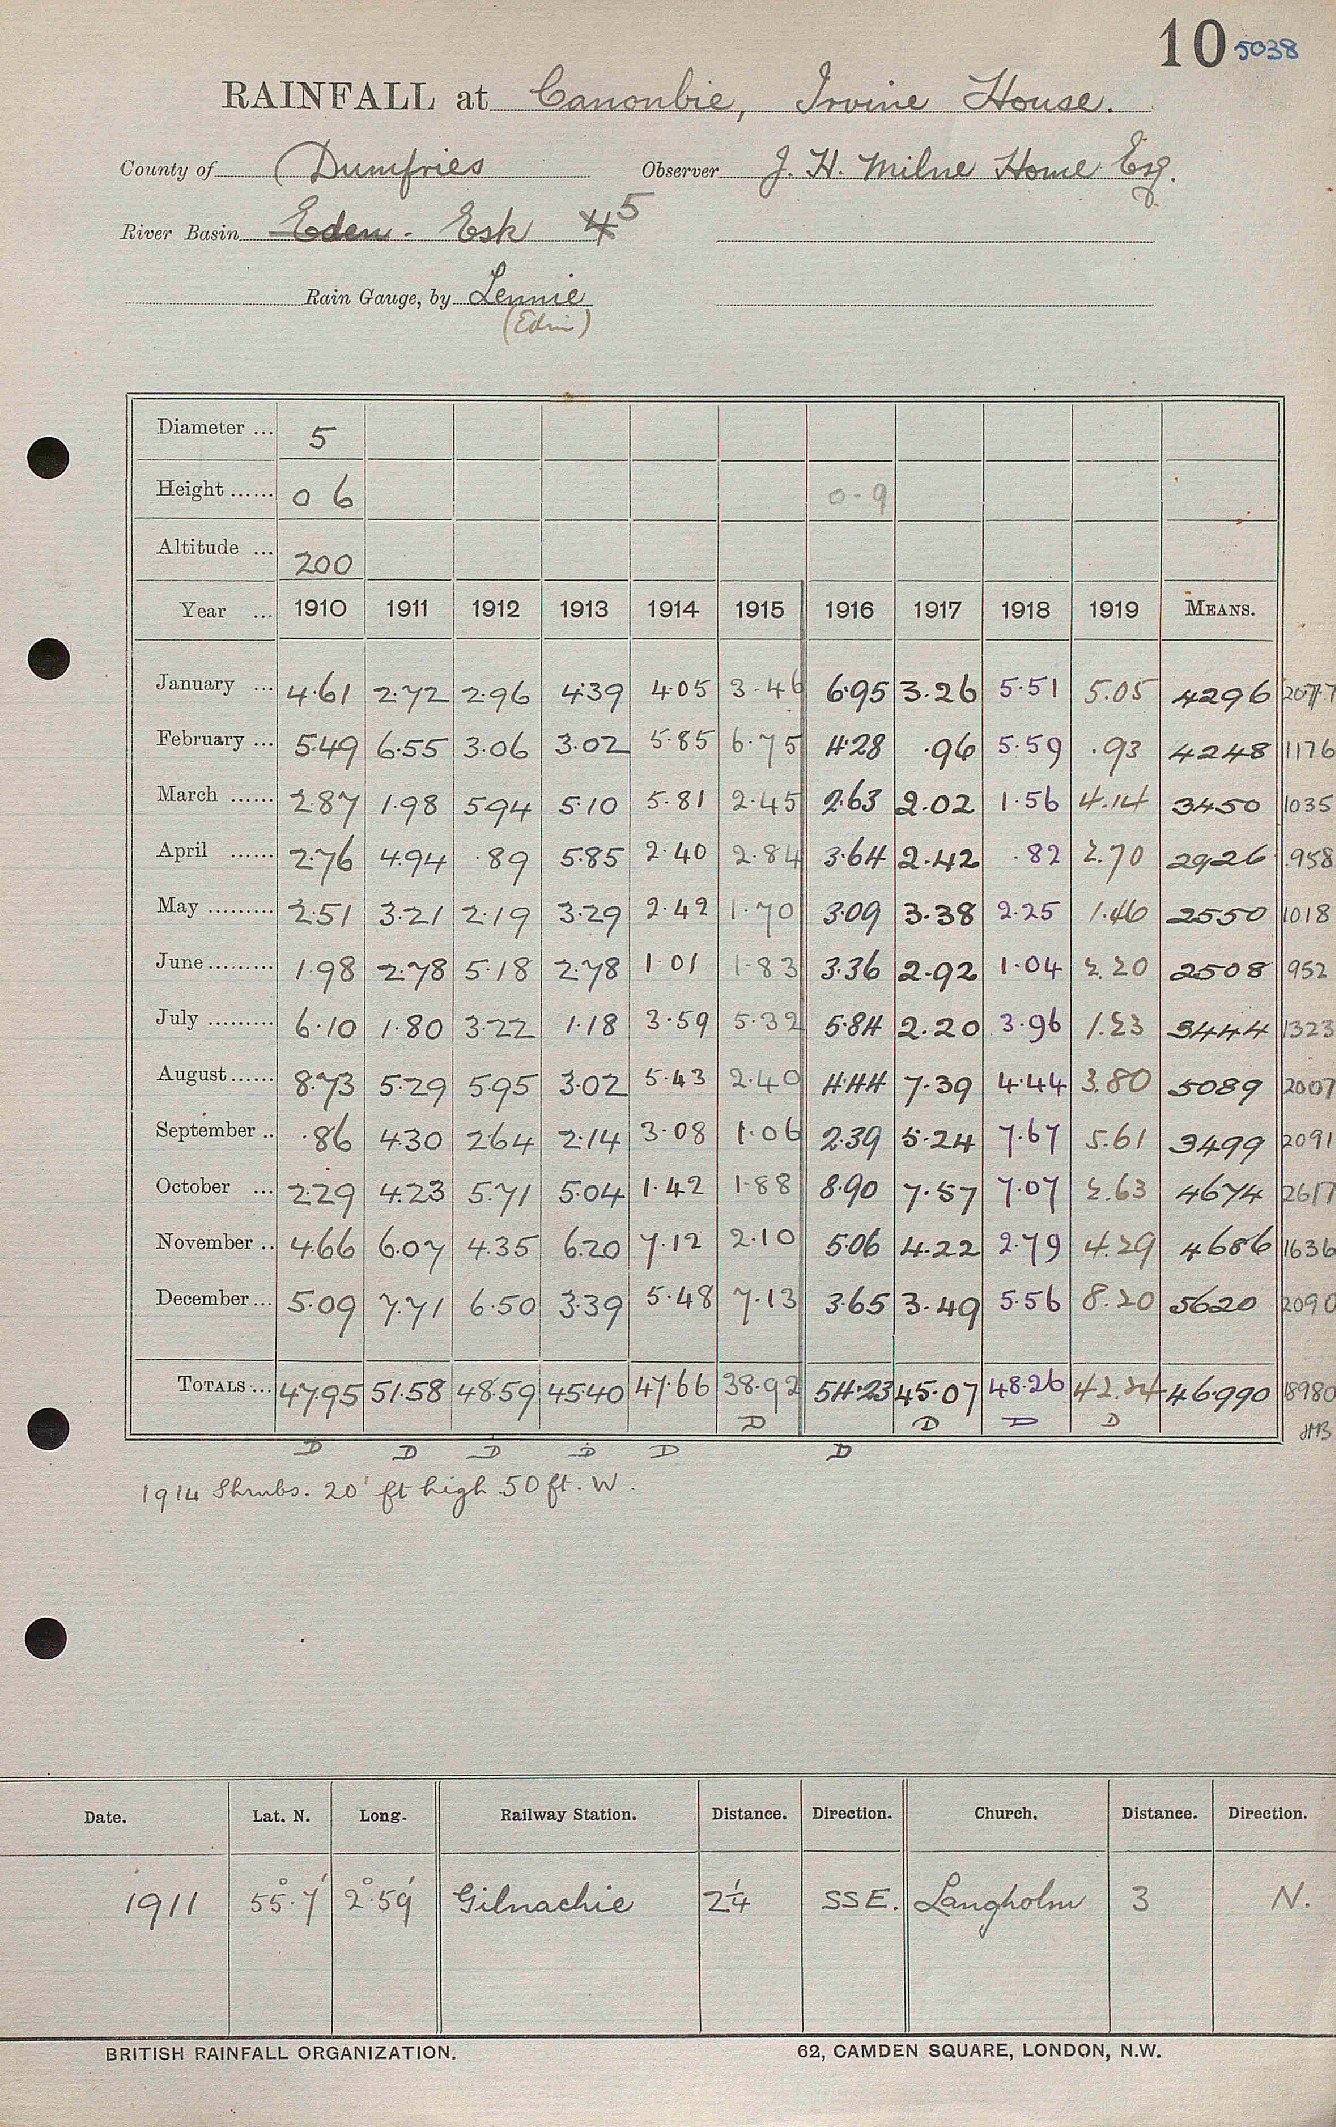 10 5038
RAINFALL at Canonbie, Irvine House.
County of Dumfries Observer J. H. Milne Home Esq.
River Basin Eden - Esk 4 5
Rain Gauge, by Lennie
(Edin)
Diameter ... 5
Height ...... 0 6 0-9
Altitude ... 200
Year ... 1910 1911 1912 1913 1914 1915 1916 1917 1918 1919 MEANS.
January ... 4.61 2.72 2.96 4.39 4.05 3.46 6.95 3.26 5.51 5.05 4296 2077
February ... 5.49 6.55 3.06 3.02 5.85 6.75 4.28 .96 5.59 .93 4248 1176
March ...... 2.87 1.98 5.94 5.10 5.81 2.45 2.63 2.02 1.56 4.14 3450 1035
April ...... 2.76 4.94 .89 5.85 2.40 2.84 3.64 2.42 .82 2.70 2926 958
May ......... 2.51 3.21 2.19 3.29 2.42 1.70 3.09 3.38 2.25 1.46 2550 1018
June ......... 1.98 2.78 5.18 2.78 1.01 1.83 3.36 2.92 1.04 2.20 2508 952
July ......... 6.10 1.80 3.22 1.18 3.59 5.32 5.84 2.20 3.96 1.23 3444 1323
August ...... 8.73 5.29 5.95 3.02 5.43 2.40 4.44 7.39 4.44 3.80 5089 2007
September .. .86 4.30 2.64 2.14 3.08 1.06 2.39 5.24 7.67 5.61 3499 2091
October ... 2.29 4.23 5.71 5.04 1.42 1.88 8.90 7.57 7.07 2.63 4674 2617
November .. 4.66 6.07 4.35 6.20 7.12 2.10 5.06 4.22 2.79 4.29 4686 1636
December ... 5.09 7.71 6.50 3.39 5.48 7.13 3.65 3.49 5.56 8.20 5620 2090
TOTALS ... 47.95 51.58 48.59 45.40 47.66 38.92 54.23 45.07 48.26 42.24 46.990 18980
D D D D
D D D D D D
1914 Shrubs. 20 ft high 50 ft. W.
Date. Lat. N. Long. Railway Station. Distance. Direction. Church. Distance. Direction.
1911 55°.7' 2°.59' Gilnochie 2¼ SSE. Langholm 3 N.
BRITISH RAINFALL ORGANIZATION. 62, CAMDEN SQUARE, LONDON, N.W.